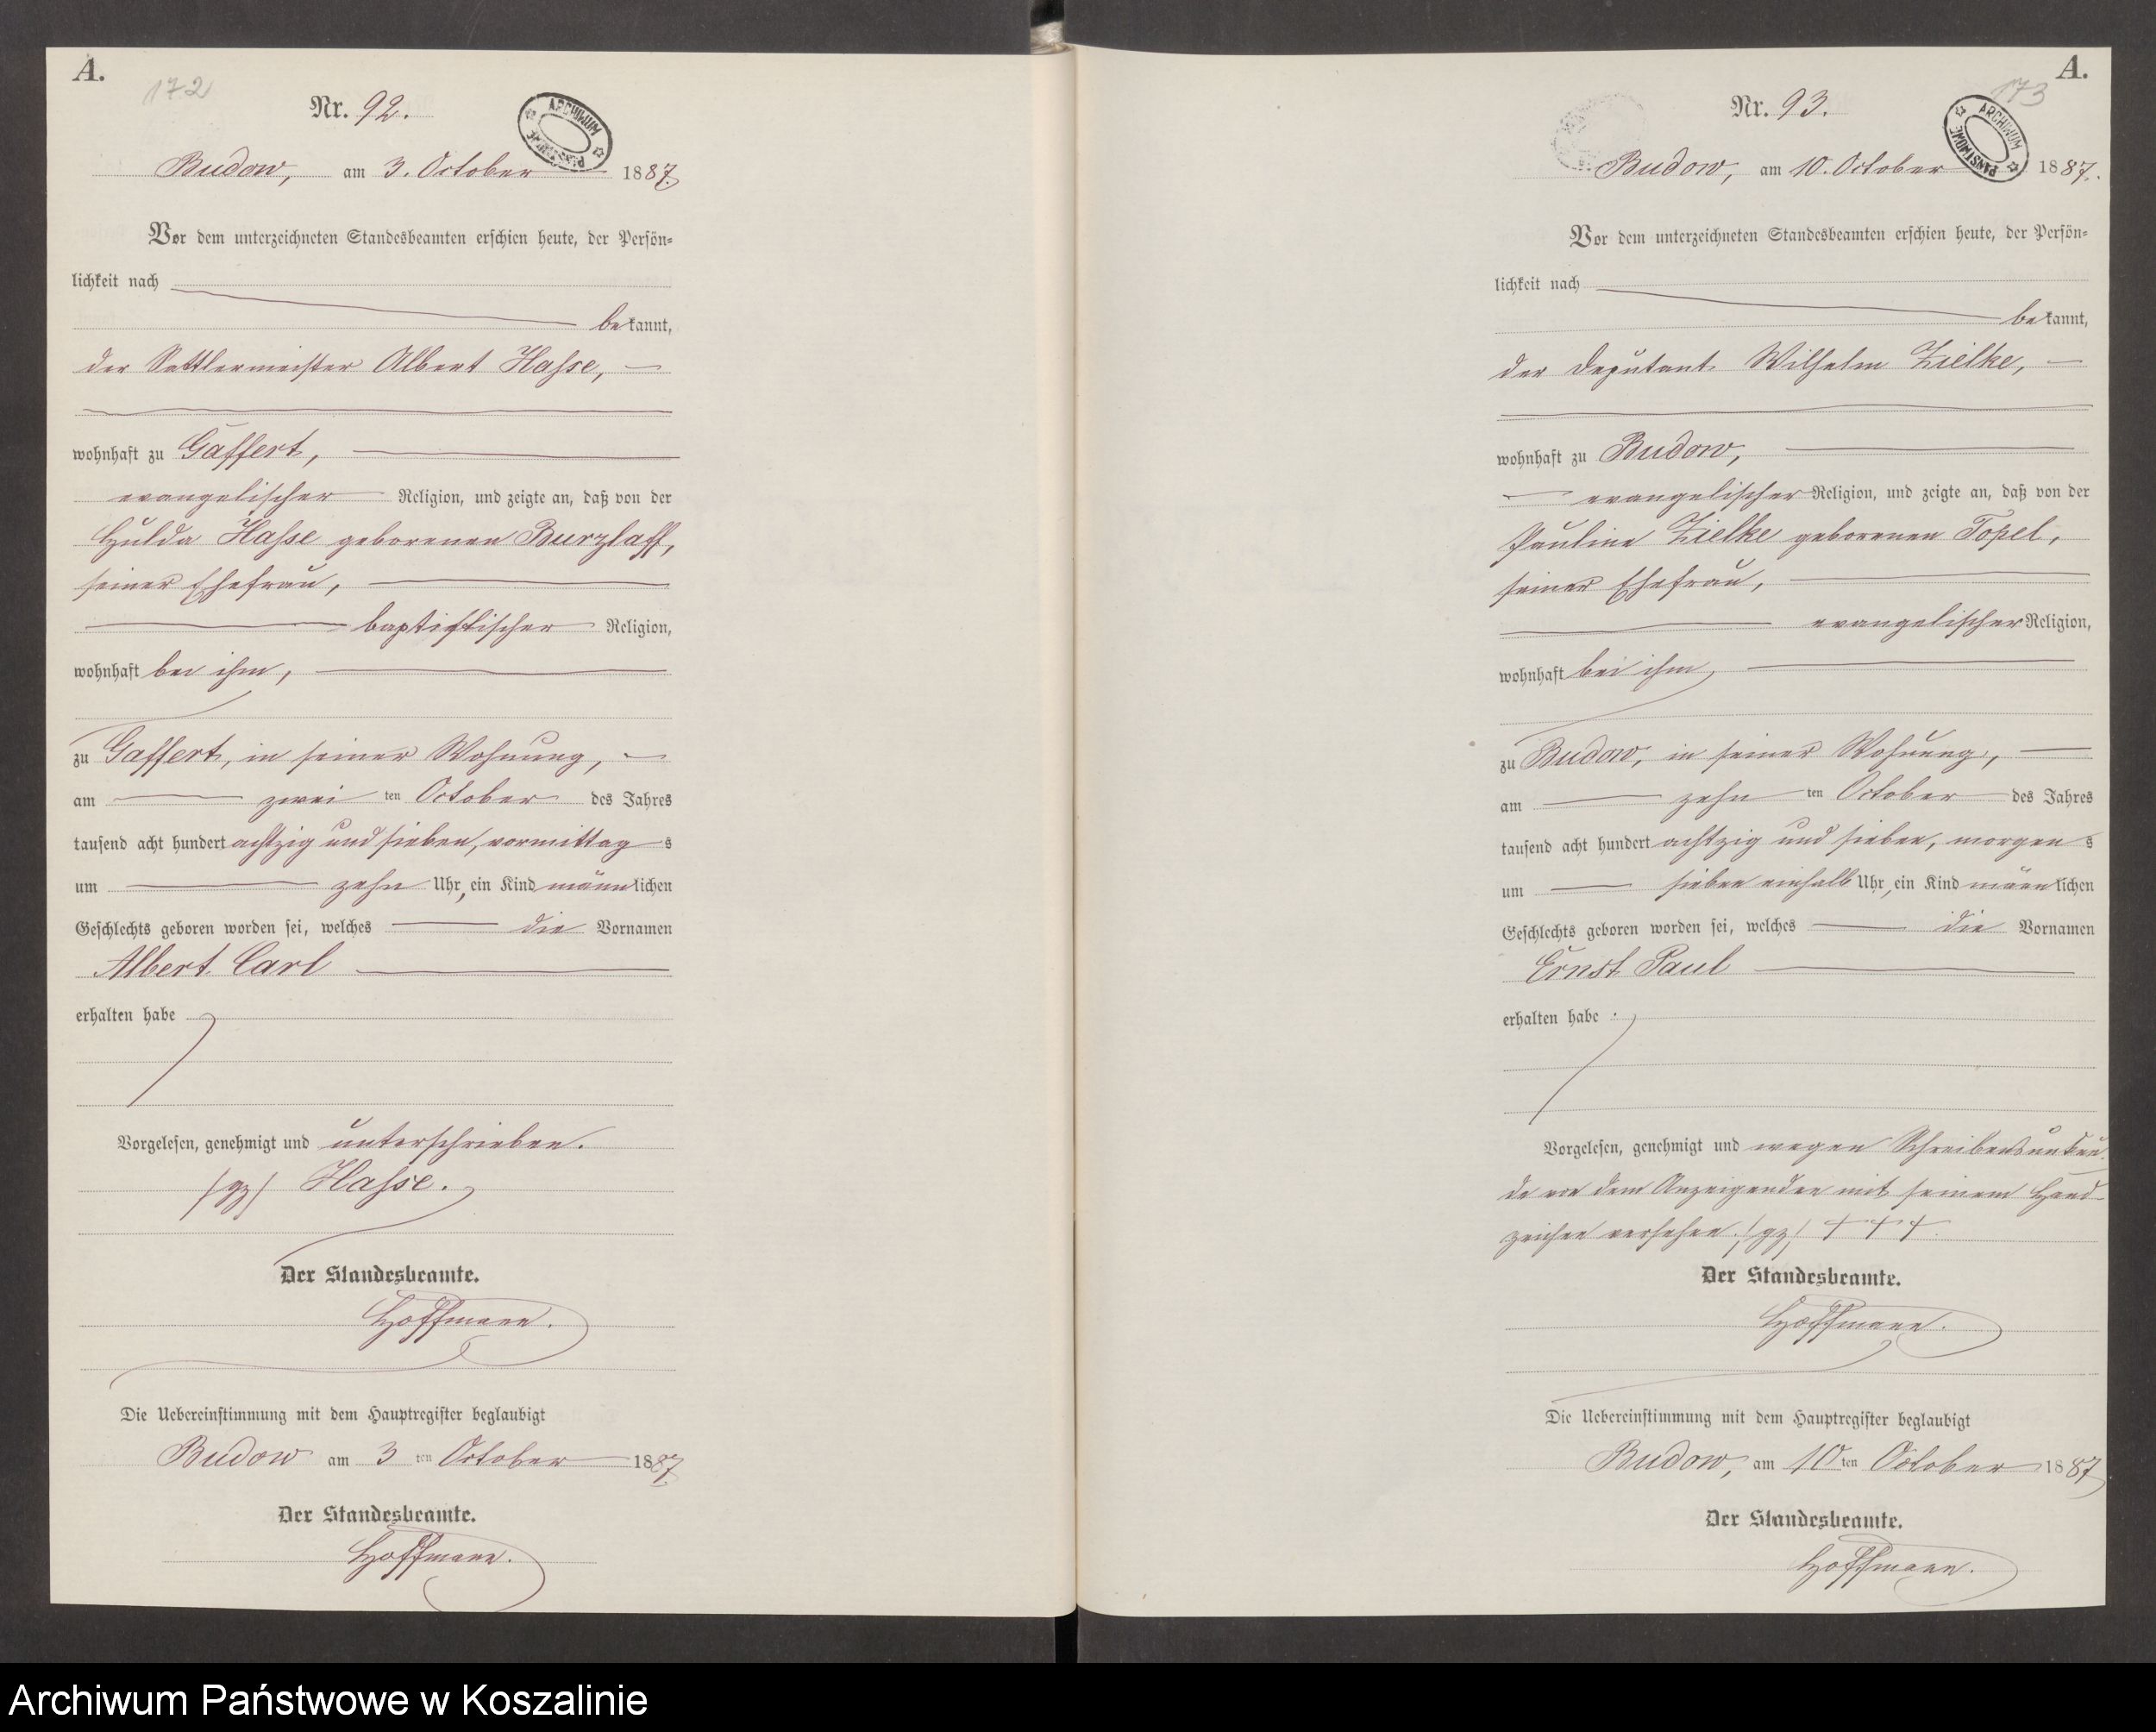 A.
172
Nr. 92.
ARCHIWUM PAŃSTWOWE
Budow, am 3. October 1887.
Vor dem unterzeichneten Standesbeamten erschien heute, der Persön=
lichkeit nach
bekannt,
der Sattlermeister Albert Hasse,
wohnhaft zu Gaffert,
evangelischer Religion, und zeigte an, daß von der
Hulda Hasse geborenen Burzlaff,
seiner Ehefrau,
baptistischer Religion,
wohnhaft bei ihm,
zu Gaffert, in seiner Wohnung,
am zwei ten October des Jahres
tausend acht hundert achtzig und sieben, vormittag s
um zehn Uhr, ein Kind männlichen
Geschlechts geboren worden sei, welches die Vornamen
Albert Carl
erhalten habe
Vorgelesen, genehmigt und unterschrieben.
/gz/ Hasse.
Der Standesbeamte.
Hoffmann.
Die Uebereinstimmung mit dem Hauptregister beglaubigt
Budow am 3 ten October 1887.
Der Standesbeamte.
Hoffmann.
A.
173
Nr. 93.
ARCHIWUM PAŃSTWOWE
Budow, am 10. October 1887.
Vor dem unterzeichneten Standesbeamten erschien heute, der Persön=
lichkeit nach
bekannt,
der Deputant Wilhelm Zielke,
wohnhaft zu Budow,
evangelischer Religion, und zeigte an, daß von der
Pauline Zielke geborenen Topel,
seiner Ehefrau,
evangelischer Religion,
wohnhaft bei ihm,
zu Budow, in seiner Wohnung,
am zehn ten October des Jahres
tausend acht hundert achtzig und sieben, morgen s
um sieben einhalb Uhr, ein Kind männlichen
Geschlechts geboren worden sei, welches die Vornamen
Ernst Paul
erhalten habe.
Vorgelesen, genehmigt und wegen Schreibensunkun-
de von dem Anzeigenden mit seinem Hand-
zeichen versehen. /gz/ + + +.
Der Standesbeamte.
Hoffmann.
Die Uebereinstimmung mit dem Hauptregister beglaubigt
Budow, am 10 ten October 1887
Der Standesbeamte.
Hoffmann.
Archiwum Państwowe w Koszalinie